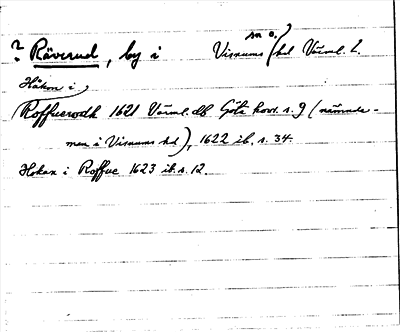 ? Räverud, by i Visnums sn o. hd Värml. L.
Håkon i
Roffuerodh 1621 Värml. db Göta hovr. s. 9 (nämnde-
men i Visnums hd), 1622 ib. s. 34.
Hokan i Roffue 1623 ib. s. 12.